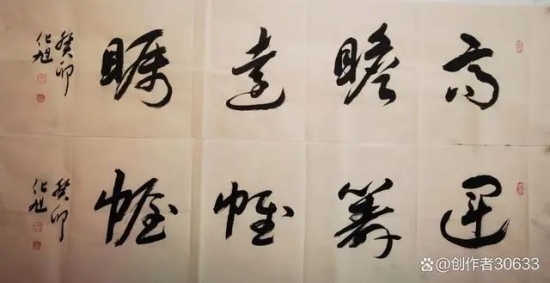 高瞻遠瞩
癸卯
化旭
運籌帷幄
癸卯
化旭
@创作者30633